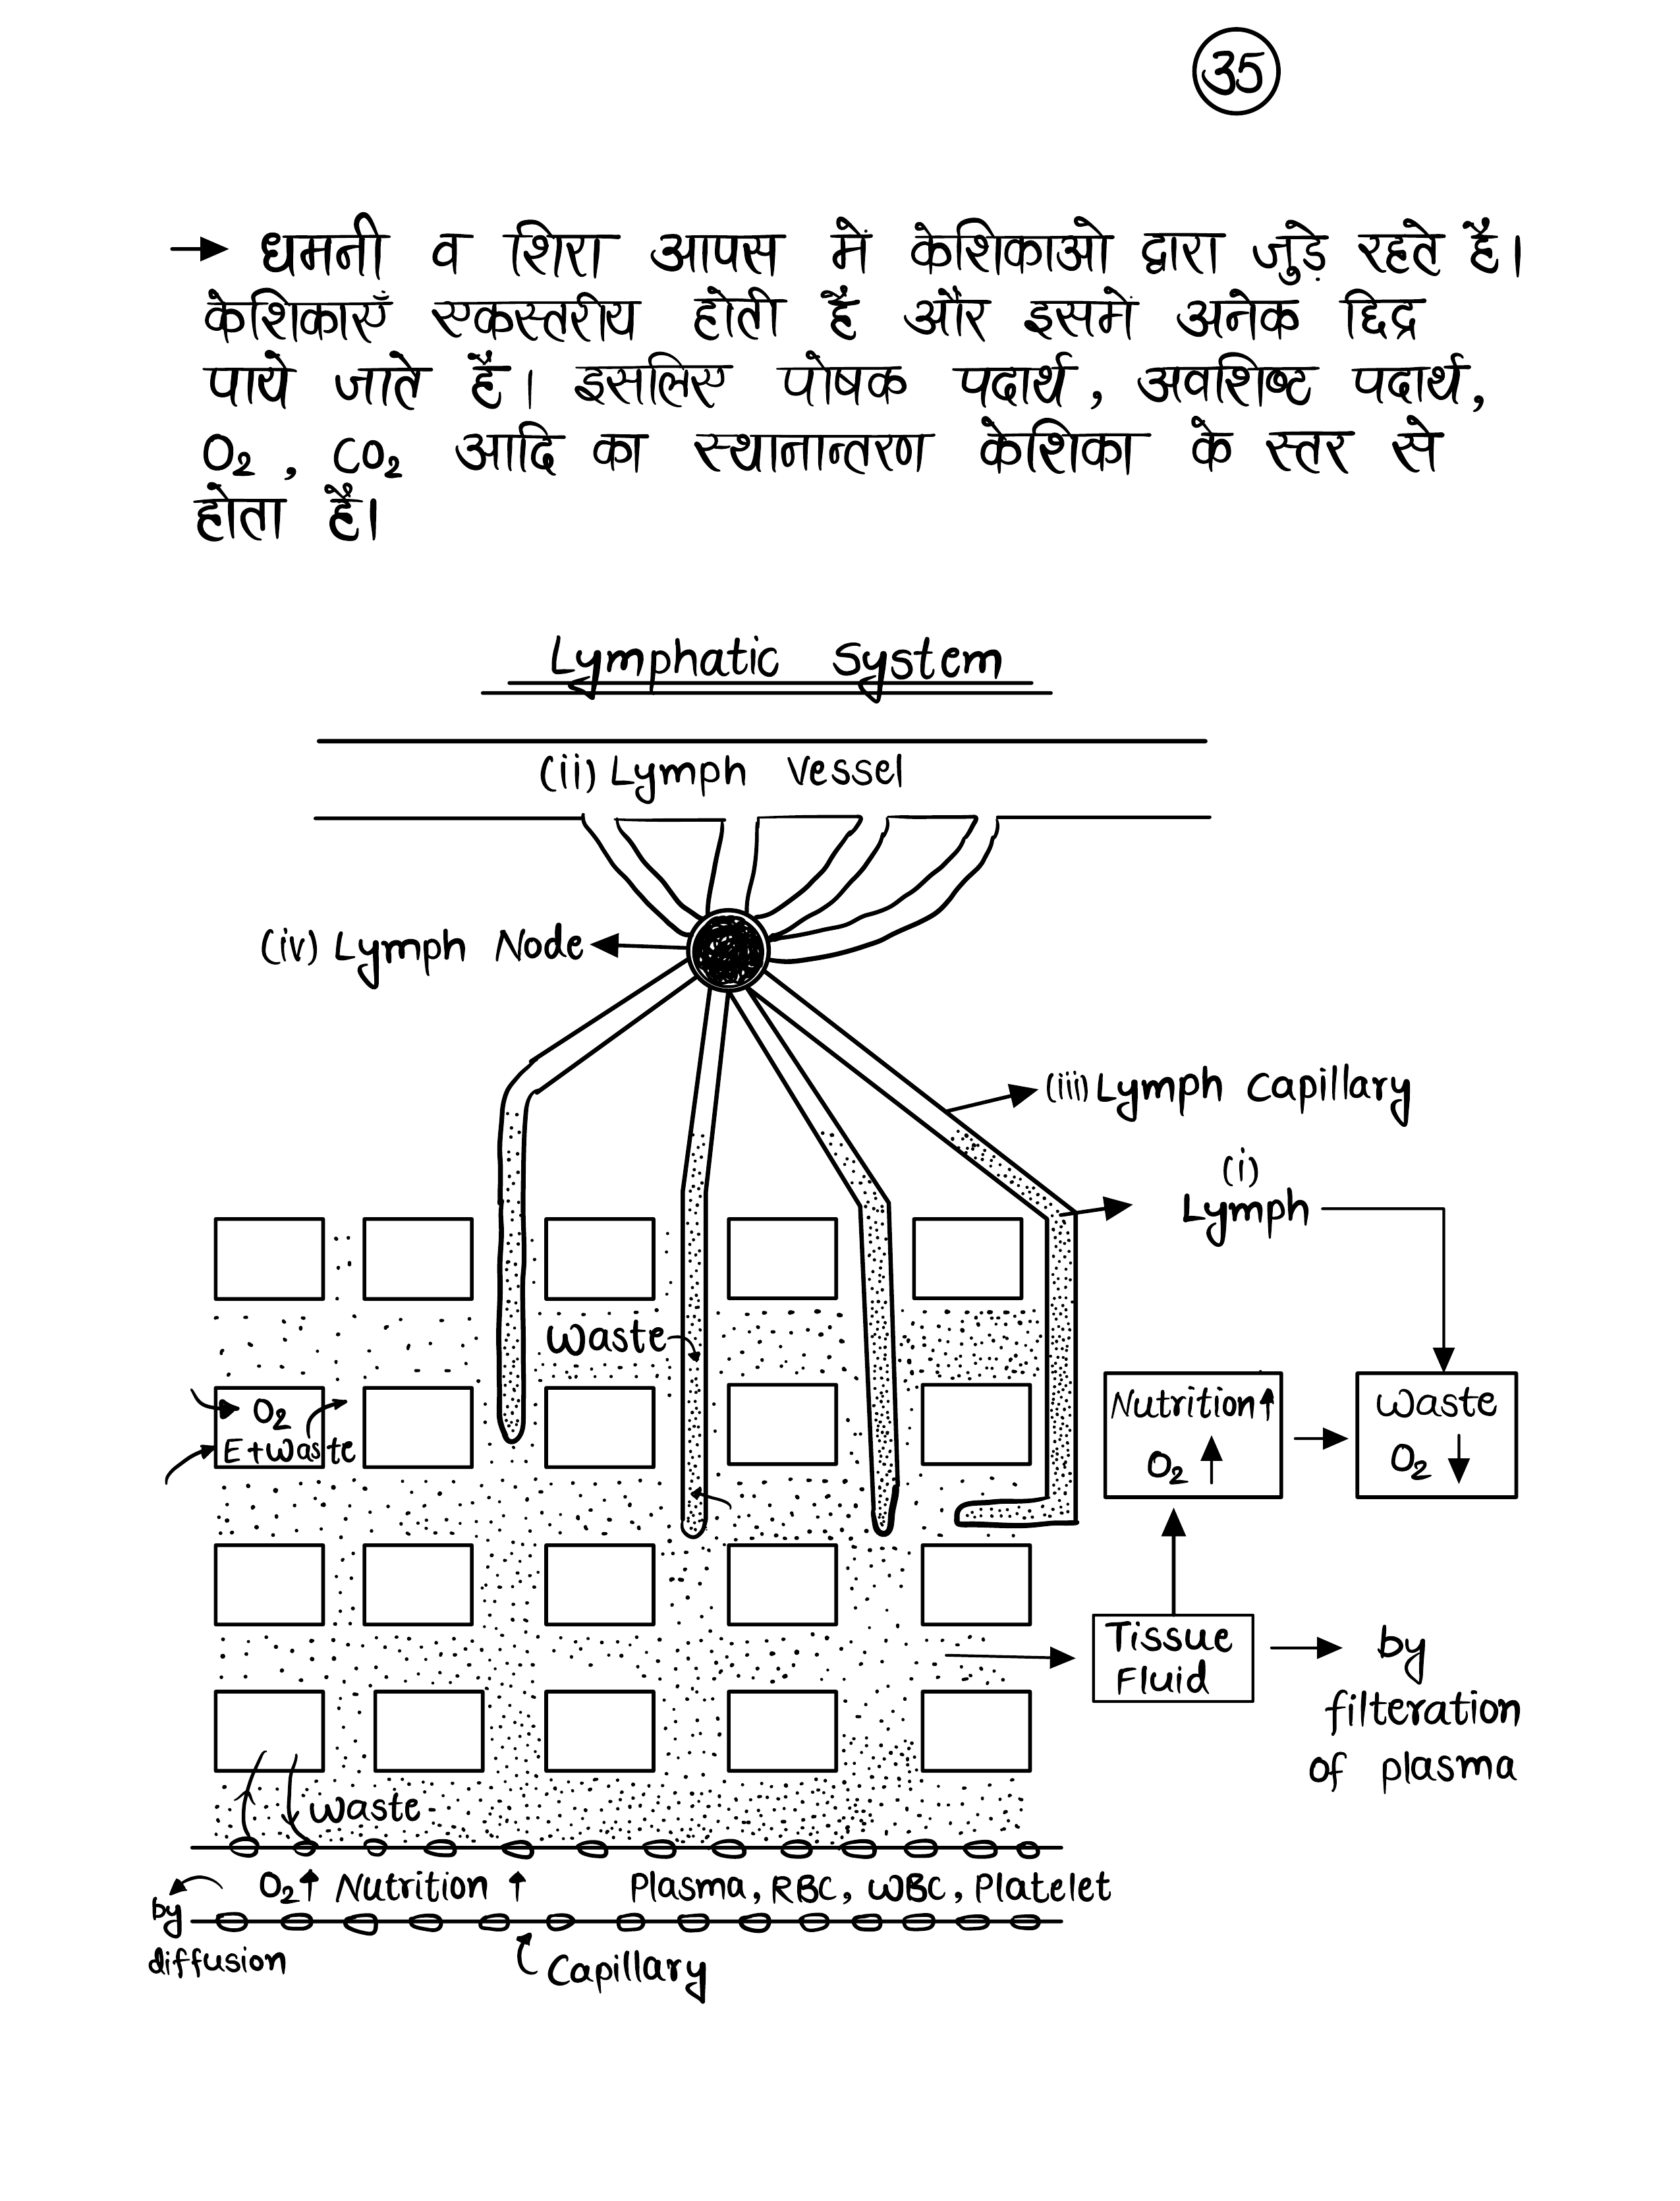 35
→ धमनी व शिरा आपस में केशिकाओ द्वारा जुड़े रहते हैं।
केशिकाएँ एकस्तरीय होती हैं और इसमे अनेक छिद्र
पाये जाते हैं। इसलिए पोषक पदार्थ, अवशिष्ट पदार्थ,
O₂, CO₂ आदि का स्थानान्तरण केशिका के स्तर से
होता हैं।
Lymphatic System
(ii) Lymph Vessel
(iv) Lymph Node
(iii) Lymph Capillary
(i)
Lymph
Waste
O₂
E+Waste
Nutrition ↑
O₂ ↑
Waste
O₂ ↓
Tissue
Fluid
by
filteration
of plasma
Waste
O₂↑ Nutrition ↑ Plasma, RBC, WBC, Platelet
by
diffusion
Capillary